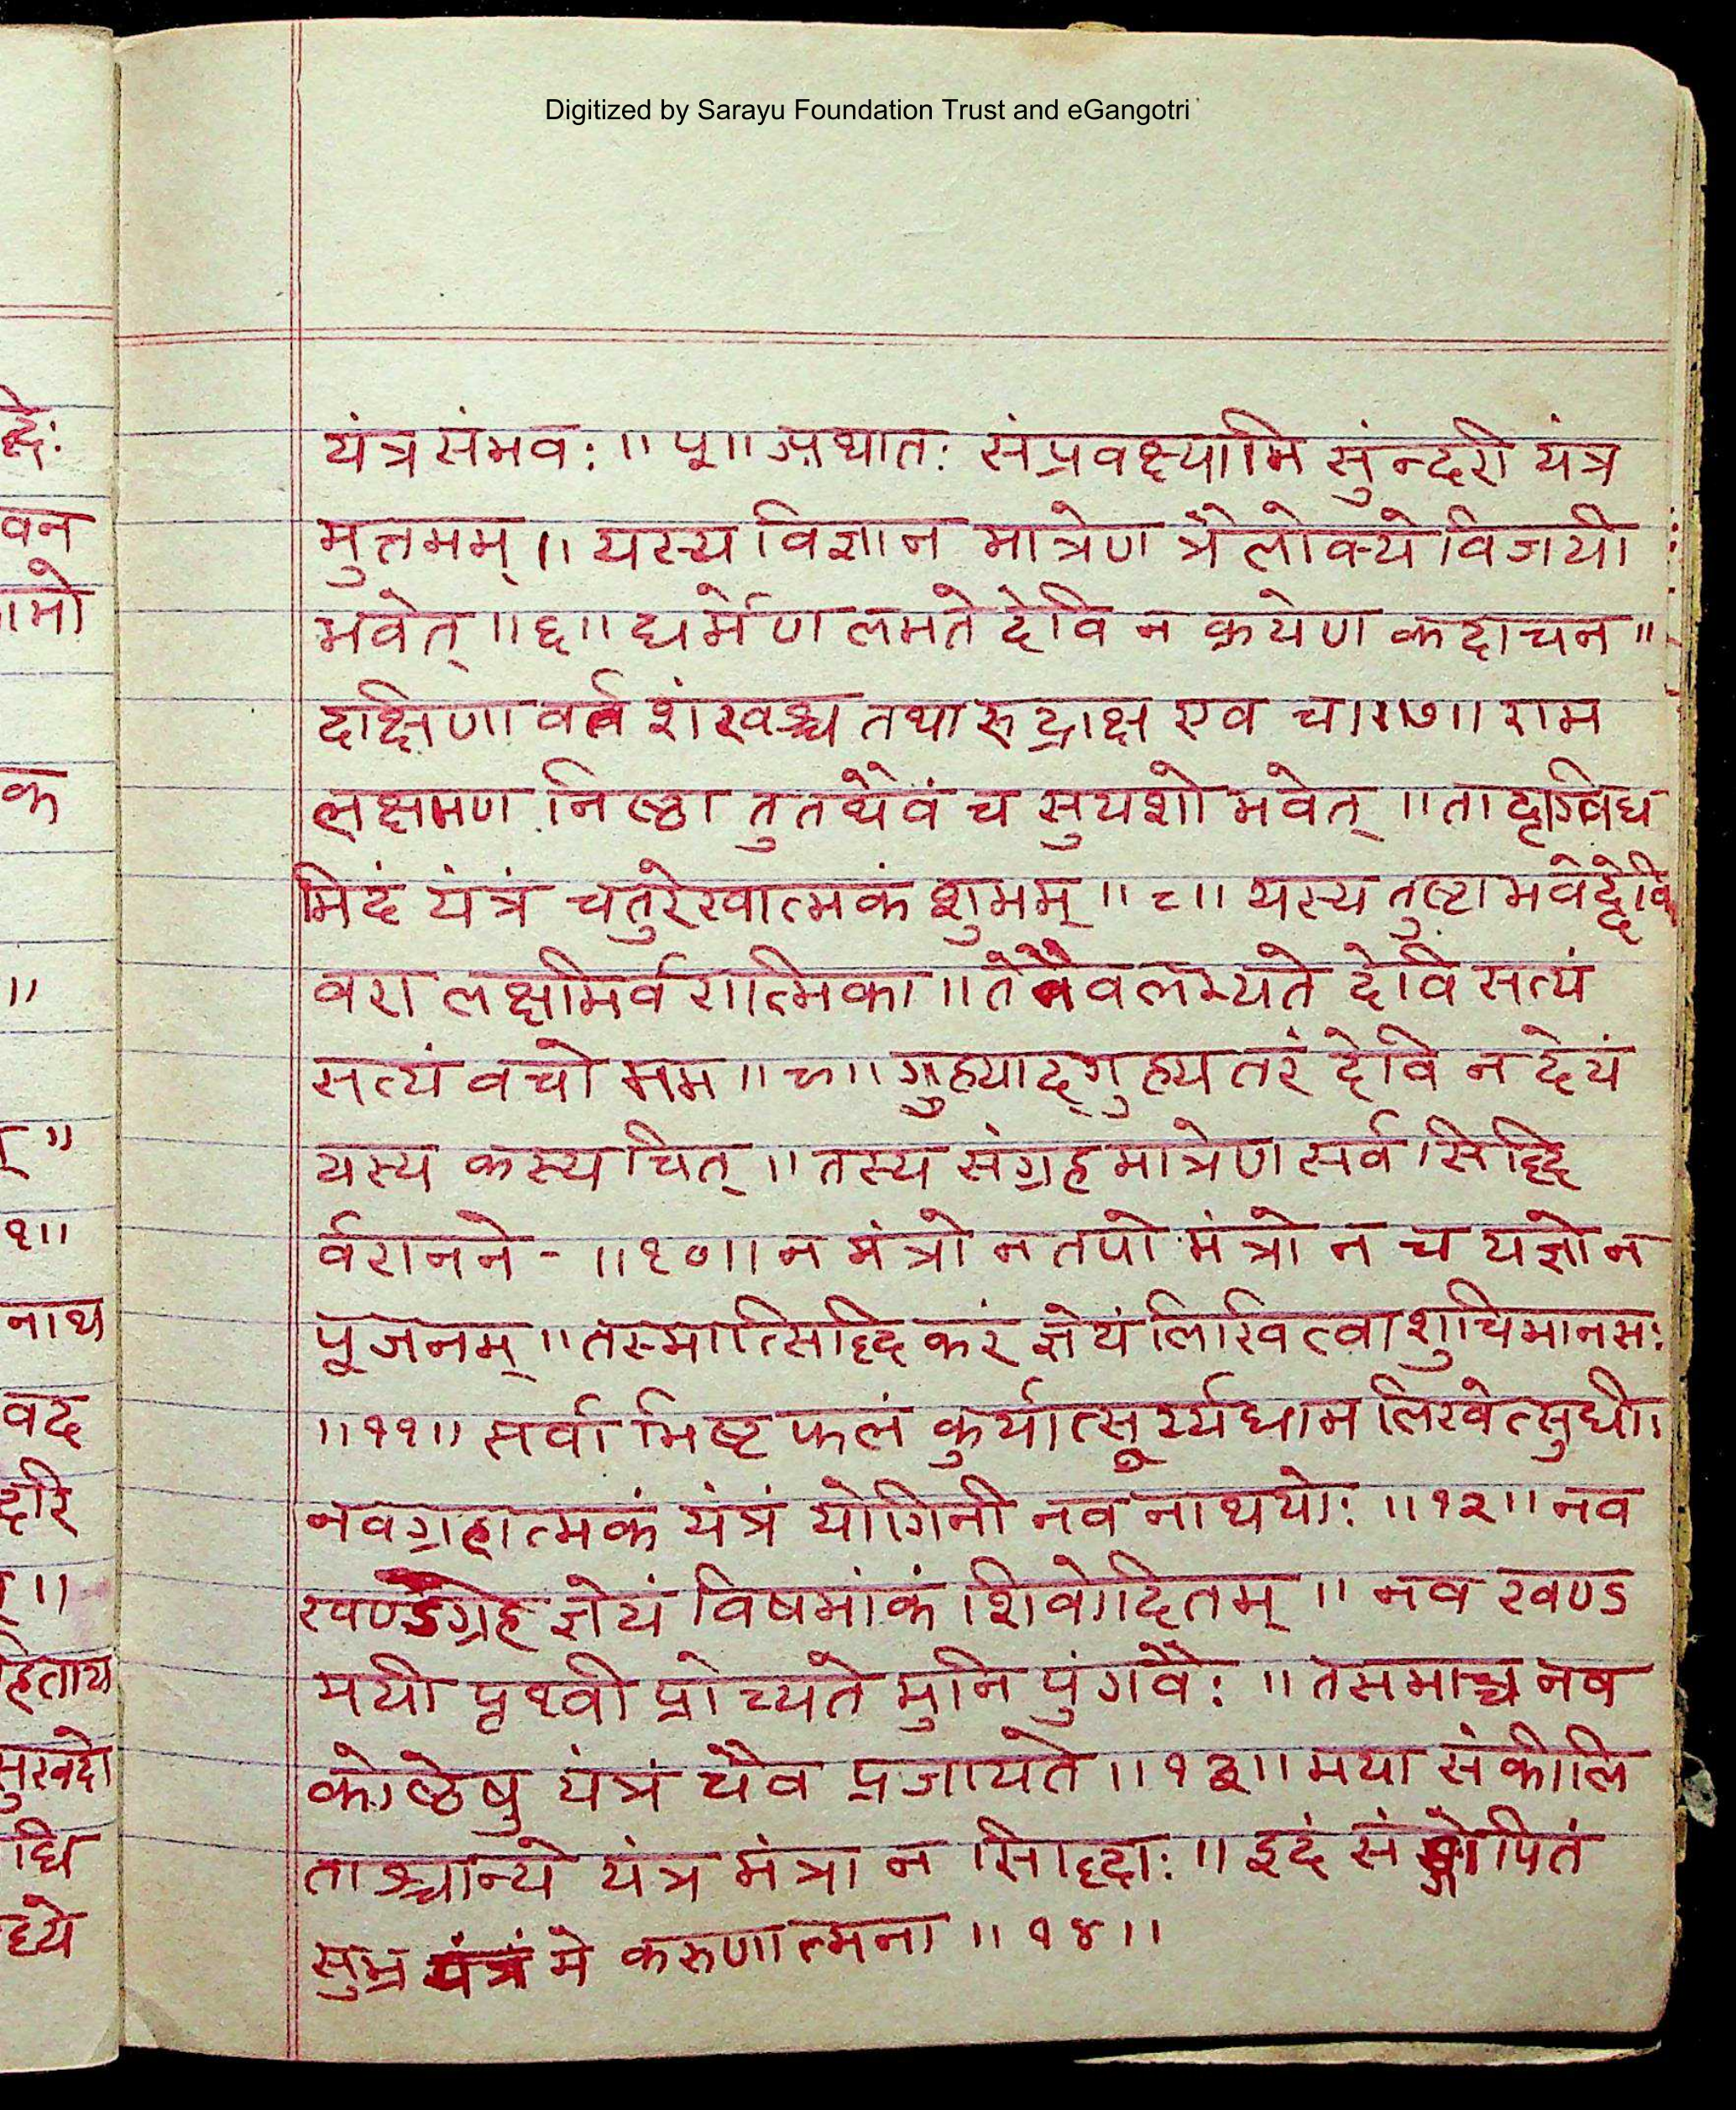 Digitized by Sarayu Foundation Trust and eGangotri
यंत्र संभवः ॥५॥ अथातः संप्रवक्ष्यामि सुंन्दरी यंत्र
मुत्तमम् ॥ यस्य विज्ञान मात्रेण त्रैलोक्ये विजयी
भवेत् ॥६॥ धर्मेण लभते देवि न क्रयेण कदाचन ॥
दक्षिणा वर्त शंखश्च तथा रुद्राक्ष एव च ॥७॥ राम
लक्षमण निष्ठा तु तथैवं च सुयशो भवेत् ॥ तादृग्विध
मिदं यंत्रं चतुरेखात्मकं शुभम् ॥८॥ यस्य तुष्टा भवेद्देवि
वरा लक्षमिर्वरात्मिका ॥ तेनैव लभ्यते देवि सत्यं
सत्यं वचो मम ॥९॥ गुह्याद्गुह्य तरं देवि न देयं
यस्य कस्य चित् ॥ तस्य संग्रह मात्रेण सर्व सिद्धि
र्वरानने - ॥१०॥ न मंत्रो न तपो मंत्रो न च यज्ञो न
पूजनम् ॥ तस्मात्सिद्धि करं ज्ञेयं लिखित्वा शुचिमानसः
॥११॥ सर्वा भिष्ट फलं कुर्यात्सूर्य्यधाम लिखेत्सुधी॥
नवग्रहात्मकं यंत्रं योगिनी नव नाथयोः ॥१२॥ नव
खण्डग्रह ज्ञेयं विषमांकं शिवोदितम् ॥ नव खण्ड
मयी पृथ्वी प्रोच्यते मुनि पुंगवैः ॥ तसमाच्च नव
कोष्ठेषु यंत्रं चैव प्रजायते ॥१३॥ मया संकीलि
ताश्चान्ये यंत्र मंत्रा न सिद्धदाः ॥ इदं सं गोपितं
सुभ्र यंत्रं मे करुणात्मना ॥१४॥